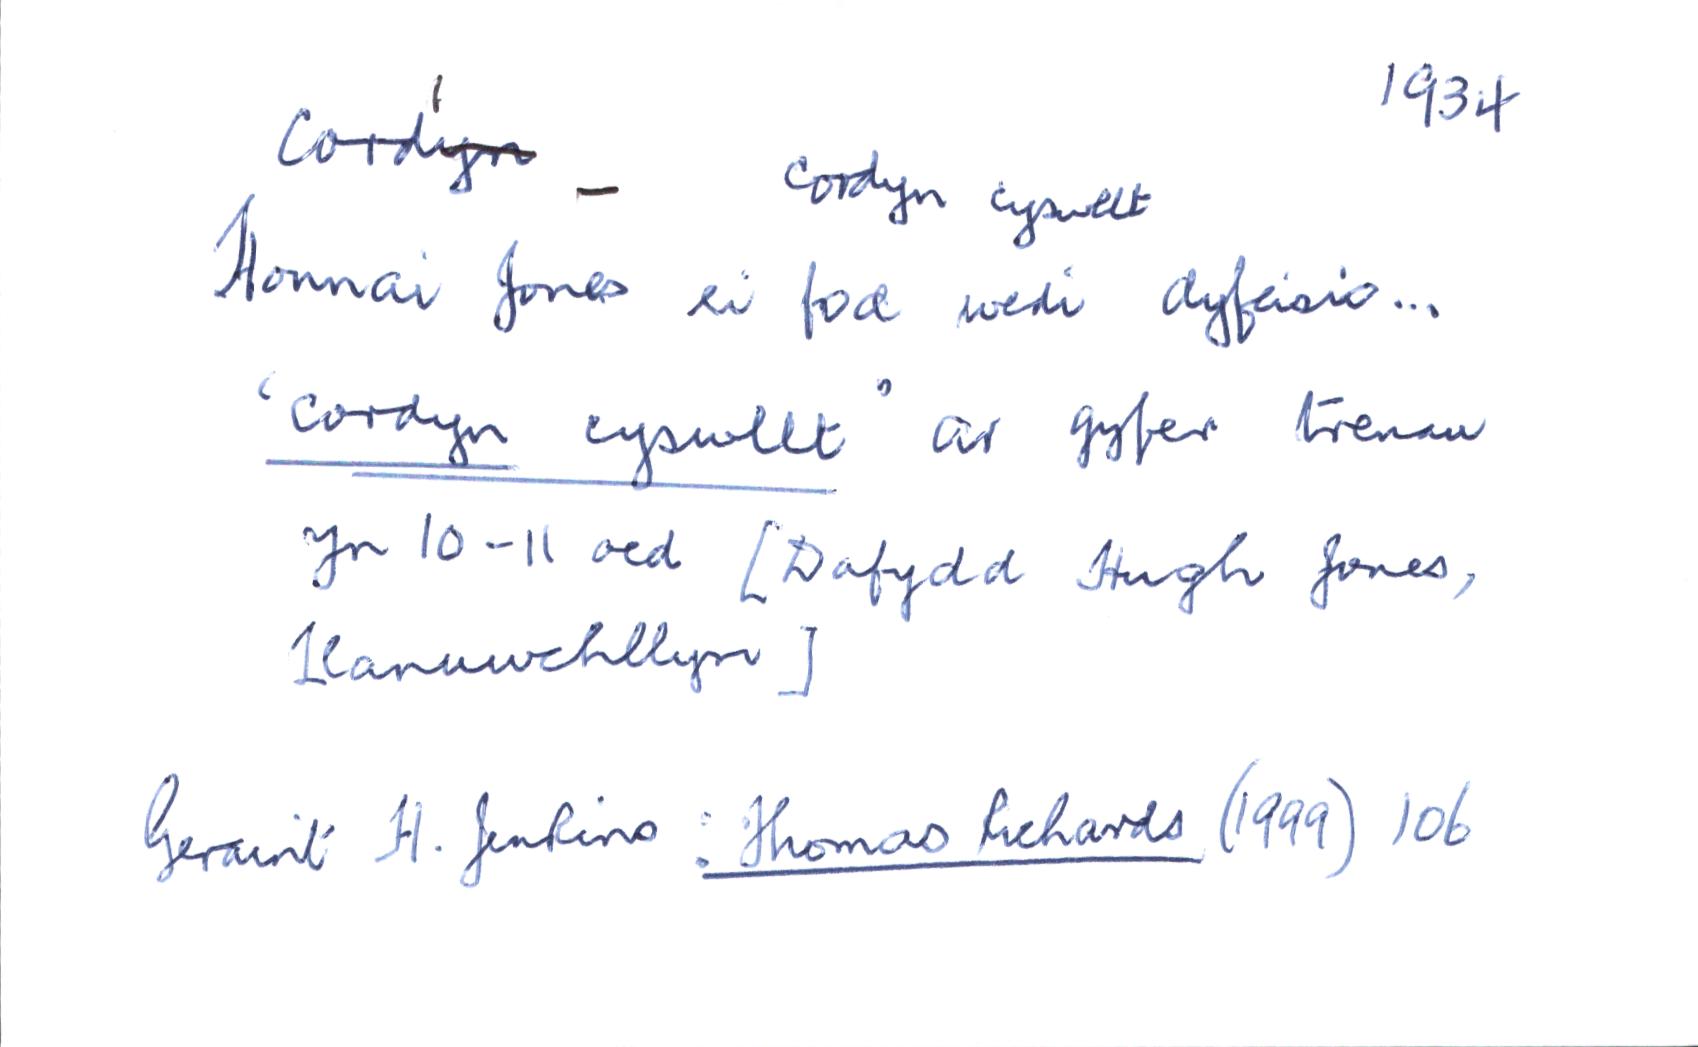 1934
Cord'yn - cordyn cyswllt
Honnai Jones ei fod wedi dyfeisio...
'cordyn cyswllt' ar gyfer trenau
yn 10-11 oed [Dafydd Hugh Jones,
Llanuwchllyn]
Geraint H. Jenkins : Thomas Richards (1999) 106